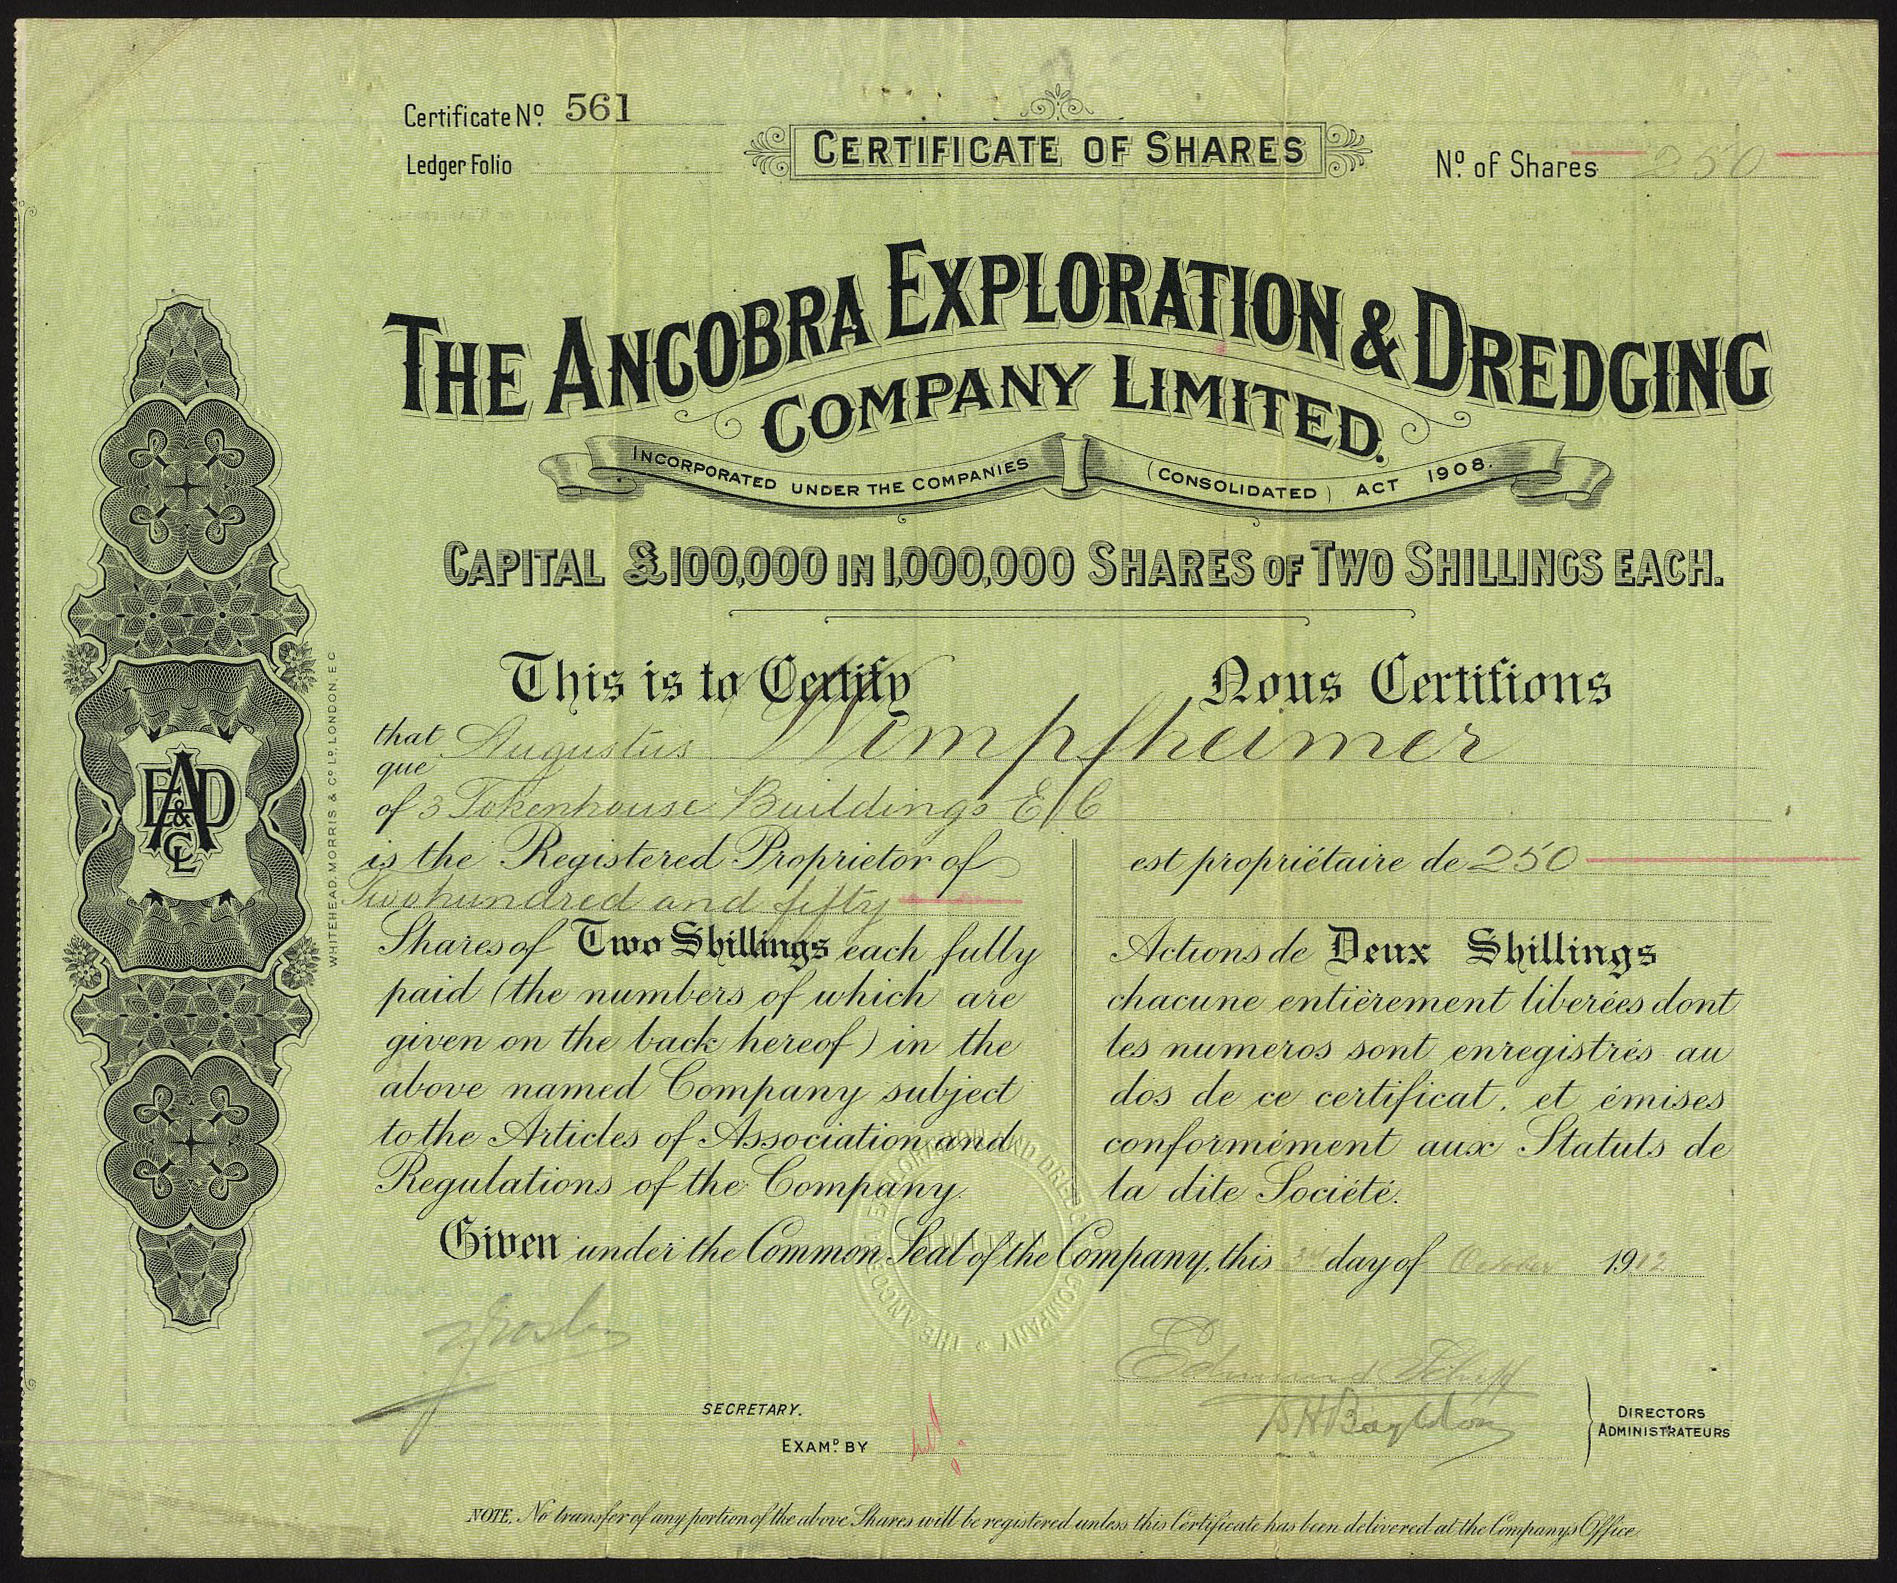 Certificate Nº 561
Ledger Folio
CERTIFICATE OF SHARES
Nº of Shares 250
THE ANCOBRA EXPLORATION & DREDGING
COMPANY LIMITED.
INCORPORATED UNDER THE COMPANIES (CONSOLIDATED) ACT 1908.
CAPITAL £100,000 IN 1,000,000 SHARES OF TWO SHILLINGS EACH.
This is to Certify
Nous Certifions
that Augustus Wimpfheimer
que
of 3 Tokenhouse Buildings E C
is the Registered Proprietor of
Two hundred and fifty
Shares of Two Shillings each fully
paid (the numbers of which are
given on the back hereof) in the
above named Company subject
to the Articles of Association and
Regulations of the Company.
est propriétaire de 250
Actions de Deux Shillings
chacune entièrement liberées dont
les numeros sont enregistrés au
dos de ce certificat, et émises
conformément aux Statuts de
la dite Société.
Given under the Common Seal of the Company, this 3rd day of October 1912
Edmund Schiff
SECRETARY.
DIRECTORS
ADMINISTRATEURS
EXAMD. BY
NOTE. No transfer of any portion of the above Shares will be registered unless this Certificate has been delivered at the Company's Office
EA&DCL
WHITEHEAD, MORRIS & Co LD, LONDON, E C
THE ANCOBRA EXPLORATION AND DREDGING COMPANY
LIMITED